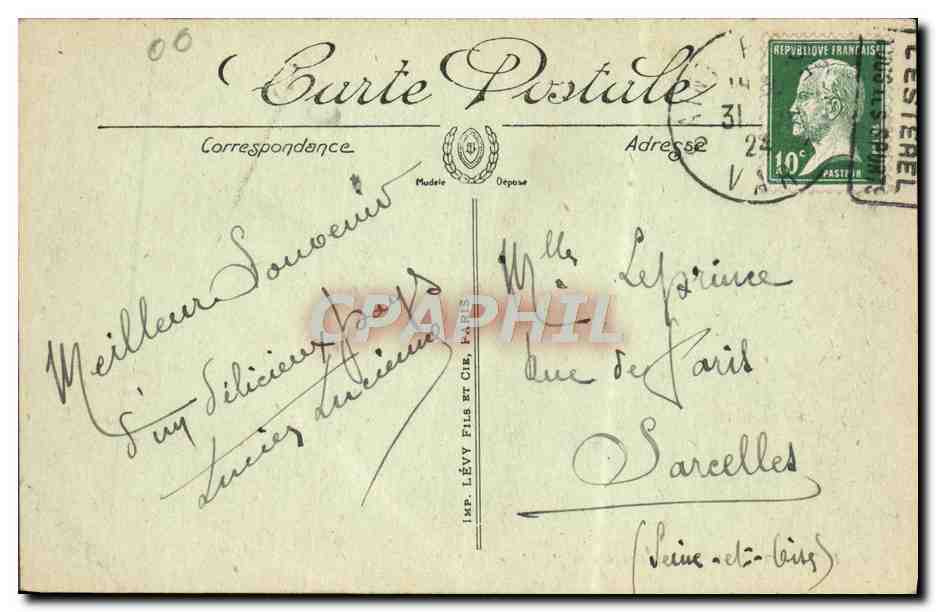 Carte Postale
Correspondance
Adresse
Modèle Déposé
RÉPUBLIQUE FRANÇAISE
10c
PASTEUR
31
VAR
L'ESTEREL
Meilleur Souvenir
d'un délicieux pays
Lucienne
Mlles Leprince
Rue de Paris
Sarcelles
(Seine-et-Oise)
IMP. LÉVY FILS ET CIE, PARIS
CPAPHIL